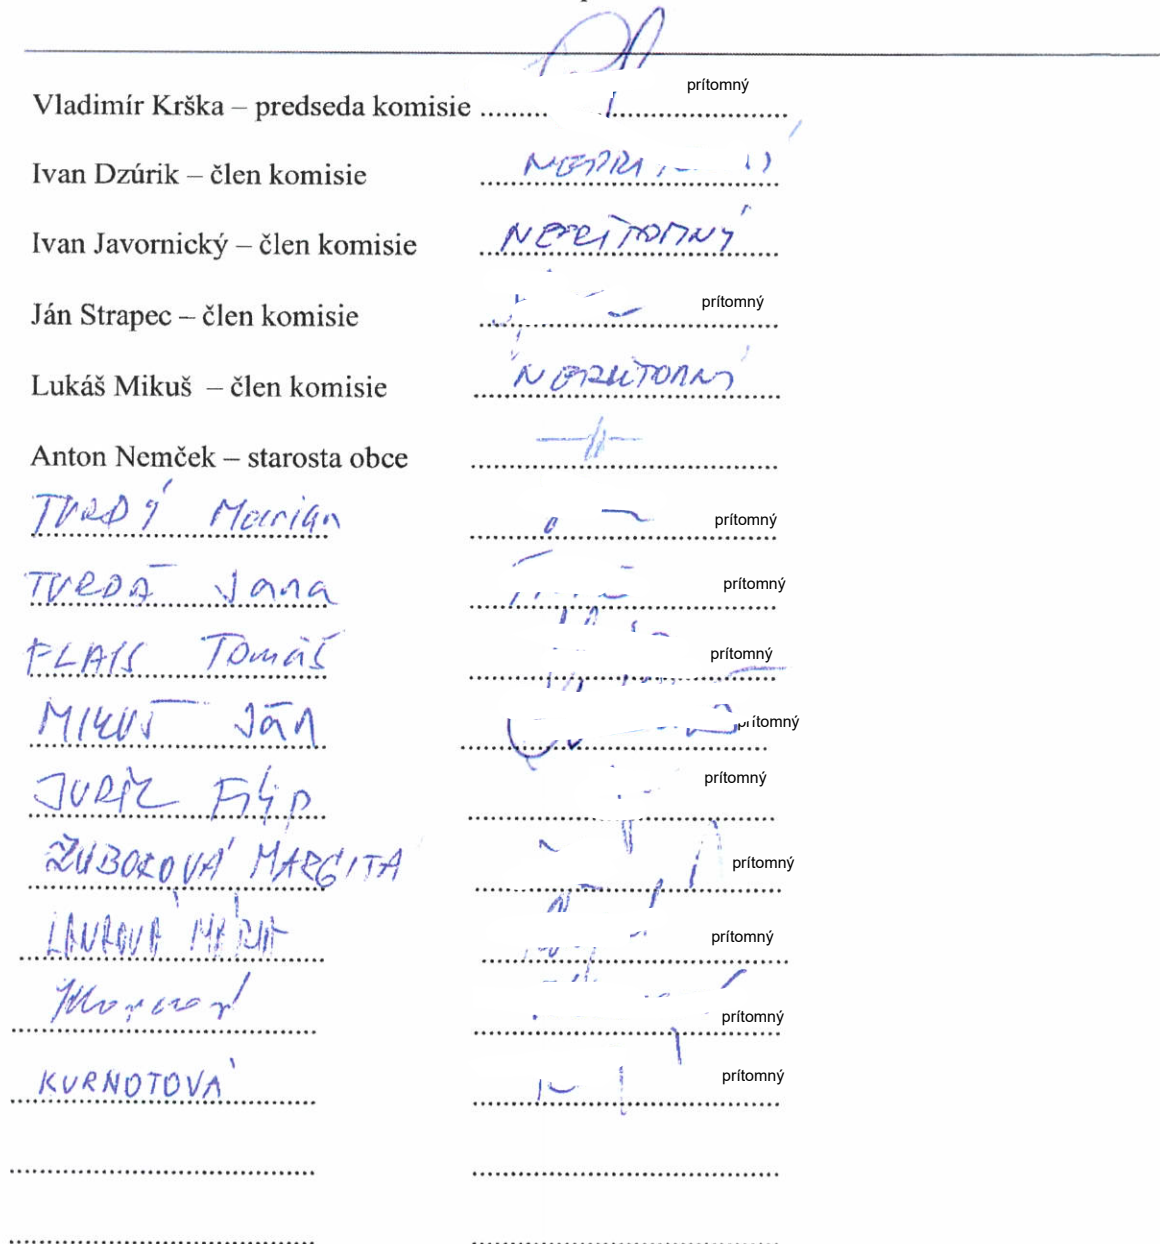 Vladimír Krška – predseda komisie ......... prítomný
Ivan Dzúrik – člen komisie
Ivan Javornický – člen komisie NEPRÍTOMNÝ
Ján Strapec – člen komisie prítomný
Lukáš Mikuš – člen komisie NEPRÍTOMNÝ
Anton Nemček – starosta obce
TVRDÝ Marian prítomný
TVRDÁ Jana prítomný
FLAIS Tomáš prítomný
MIKUŠ Ján prítomný
JURÍK Filip prítomný
ŽUBOROVÁ MARGITA prítomný
prítomný
prítomný
KURNOTOVÁ prítomný